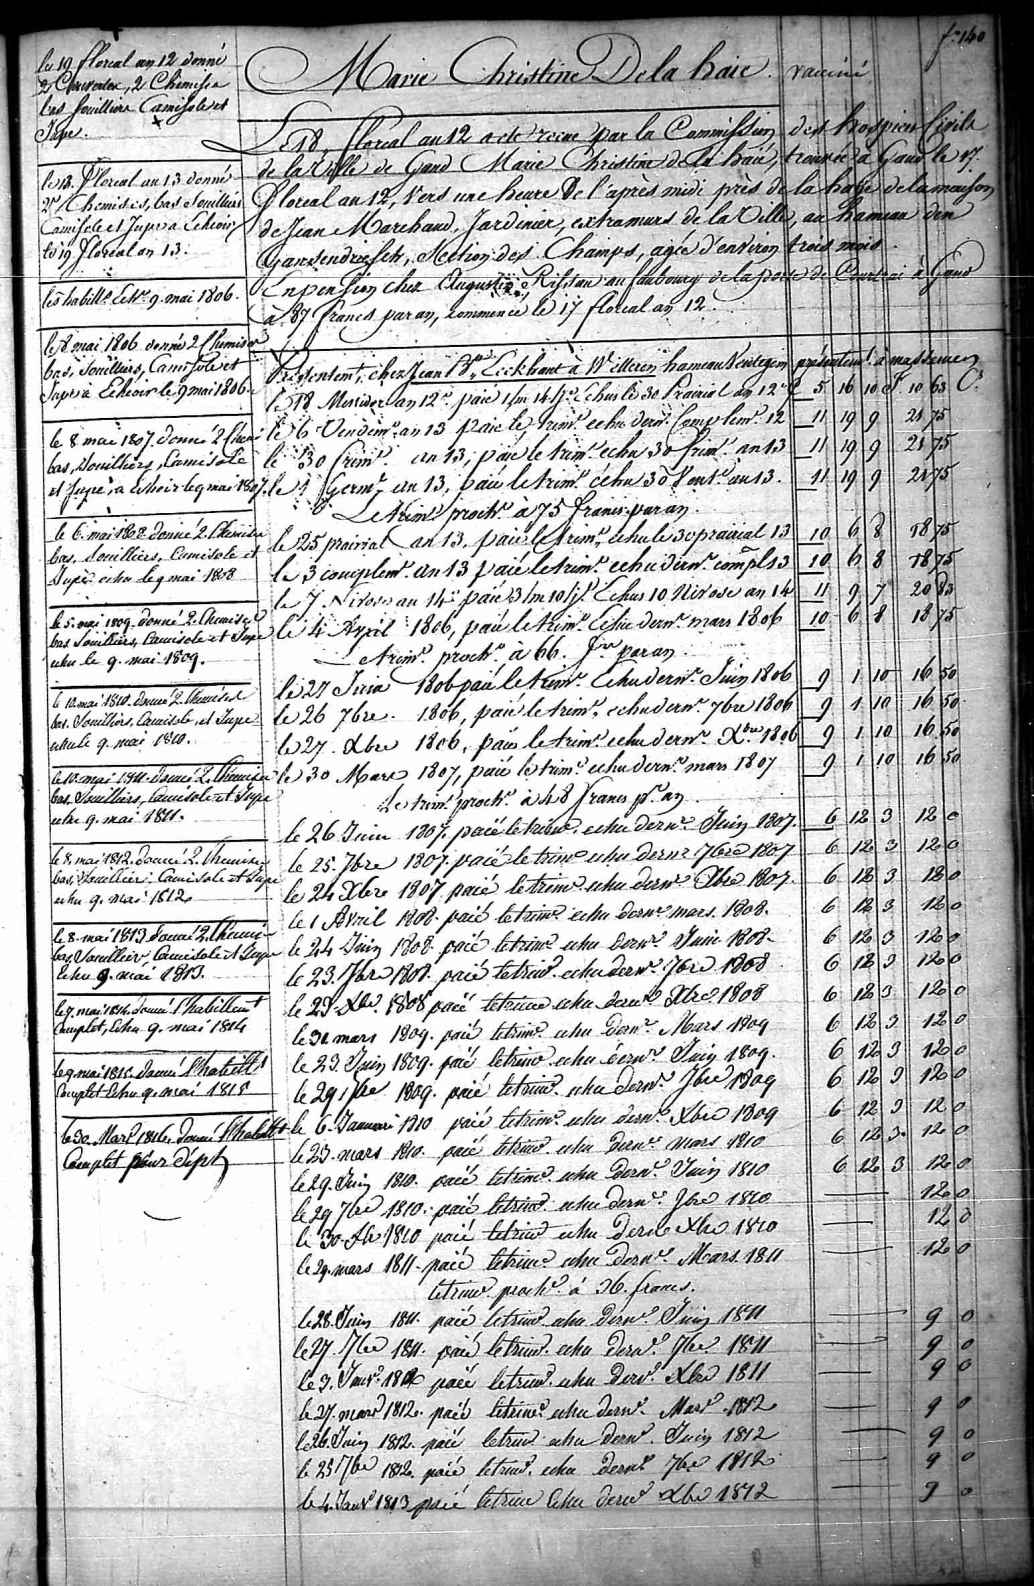 fo 140
Marie Christine De la haie. vacciné
Le 18, floreal an 12 a été recue par la Commission des hospices Civils
de la Ville de Gand Marie Christine de la haie, trouvée à Gand le 17.
floreal an 12, vers une heure de l'après midi près de la haye de la maison
de Jean Marchand, Jardinier, extramuros de la Ville, au hameau den
Gansendriesch, Section des Champs, agée d'environ trois mois.
En pension chez Augustin Rissau au faubourg de la porte de Courtrai à Gand
à 87 francs par an, commencé le 17 floreal an 12.
le 19 floreal an 12 donné
2 Couvertes, 2 Chemises
bas souilliers Camisole et
Jupe.
le 18. floreal an 13 donné
2 Chemises, bas souilliers
Camisole et Jupe à Echeoir
le 19 floreal an 13.
les habillts Echs. 9. mai 1806.
le 8. mai 1806 donné 2 Chemises
bas, souilliers, Camisole et
Jupe à Echeoir le 9 mai 1806.
le 8 mai 1807. donné 2 Chemi
bas, souilliers, Camisole
et Jupe, à echoir le 9 mai 1807.
le 6. mai 1808 donné 2. Chemise
bas, souilliers, Camisole et
Jupe echu le 9 mai 1808
le 5. mai 1809. donné 2. Chemises
bas souilliers, Camisole et Jupe
echu le 9. mai 1809.
le 10. mai 1810. donné 2. Chemise
bas. souilliers, Camisole, et Jupe
echu le 9. mai 1810.
le 10. mai 1811. donné 2. Chemise
bas. souilliers, Camisole et Jupe
echu 9. mai 1811.
le 8. mai 1812. donné 2. Chemise
bas, souilliers. Camisole et Jupe
echu 9. mai 1812
le 8. mai 1813 donné 2. Chemise
bas, souilliers, Camisole et Jupe
Echu 9. mai 1813.
le 7. mai 1814. donné l'habillemt
complet, Echu 9. mai 1814
le 9. mai 1815. donné l'habillt
complet Echu 9. mai 1815
le 30. Mars 1816. donné l'habillt
Complet pour
Presentemt. chez Jean Bte. Eeckhout à Wetteren hameau presentemt. à
le 18 Messidor an 12e. paié 1/m 14 js. echus le 30 Prairial an 12e £ 5 16 10 F. 10 63 Cs
le 6 Vendemre. an 13 paié le trimr. echu dernr. Complemr. 12 11 19 9 21 75
le 30 frimre. an 13, paié le trimr. echu 30 frimre. an 13 11 19 9 21 75
le Germl. an 13, paié le trimr. echu 30 Vents. an 13. 11 19 9 21 75
Le trimr. prochn. à 75 francs par an.
le 25 prairial an 13. paié le trimr. echu le 30 prairial 13 10 6 8 18 75
le 3 complemr. an 13 paié le trimr. echu dernr. compl. 13 10 6 8 18 75
le 7. Nivose an 14e paié 3/m 10/js. Echus 10 Nivose an 14 11 9 7 20 83
le 4 Avril 1806, paié le trimr. echu dernr. mars 1806 10 6 8 18 75
Le trimr. prochn. à 66. frs par an.
le 27 Juin 1806 paié le trimr. Echu dernr. Juin 1806 9 1 10 16 50
le 26 7bre. 1806, paié le trimr. echu dernr. 7bre 1806 9 1 10 16 50
le 27. Xbre 1806, paié le trimr. echu dernr. Xbre 1806 9 1 10 16 50
le 30 Mars 1807, paié le trimr. echu dernr. mars 1807 9 1 10 16 50
Le trimr. prochn. à 48 francs pr. an.
le 26 Juin 1807. paié le trimr. echu dernr. Juin 1807. 6 12 3 12 0
le 25. 7bre 1807. paié le trimr. echu dernr 7bre 1807 6 12 3 12 0
le 24 Xbre 1807 paié le trimr. echu dernr. Xbre 1807. 6 12 3 12 0
le 1 Avril 1808. paié le trimr. echu dernr. mars. 1808. 6 12 3 12 0
le 24 Juin 1808. paié le trimr. echu dernr. Juin 1808. 6 12 3 12 0
le 23. 7bre 1808. paié le trimr. echu dernr. 7bre 1808 6 12 3 12 0
le 23. Xbre. 1808 paié le trimr echu dernr. Xbre 1808 6 12 3 12 0
le 30 mars 1809. paié le trimr. echu dernr. Mars 1809 6 12 3 12 0
le 23. Juin 1809. paié le trimr. echu dernr. Juin 1809. 6 12 3 12 0
le 29 7bre 1809. paié le trimr. echu dernr. 7bre 1809 6 12 3 12 0
le 6. Janvier 1810 paié le trimr. echu dernr. Xbre 1809 6 12 3 12 0
le 23. mars 1810. paié le trimr. echu dernr. mars 1810 6 12 3. 12 0
le 29. Juin 1810. paié le trimr. echu dernr. Juin 1810 6 12 3 12 0
le 29 7bre 1810. paié le trimr. echu dernr. 7bre 1810 12 0
le 30. Xbre 1810 paié le trimr. echu dernr Xbre 1810 12 0
le 29. mars 1811. paié le trimr. echu dernr. Mars. 1811 12 0
le trimr. prochn. à 36. francs.
le 28. Juin 1811. paié le trimr. echu dernr. Juin 1811 9 0
le 27. 7bre 1811. paié le trimr. echu dernr. 7bre 1811 9 0
le 3. Janvr. 1812 paié le trimr. echu dernr. Xbre 1811 9 0
le 27. mars 1812. paié le trimr. echu dernr. Mars. 1812 9 0
le 26. Juin 1812. paié le trimr echu dernr. Juin 1812 9 0
le 25 7bre 1812. paié le trimr. echu dernr. 7bre 1812 9 0
le 4. Janvr 1813 paié le trimr Echu dernr Xbre 1812 9 0